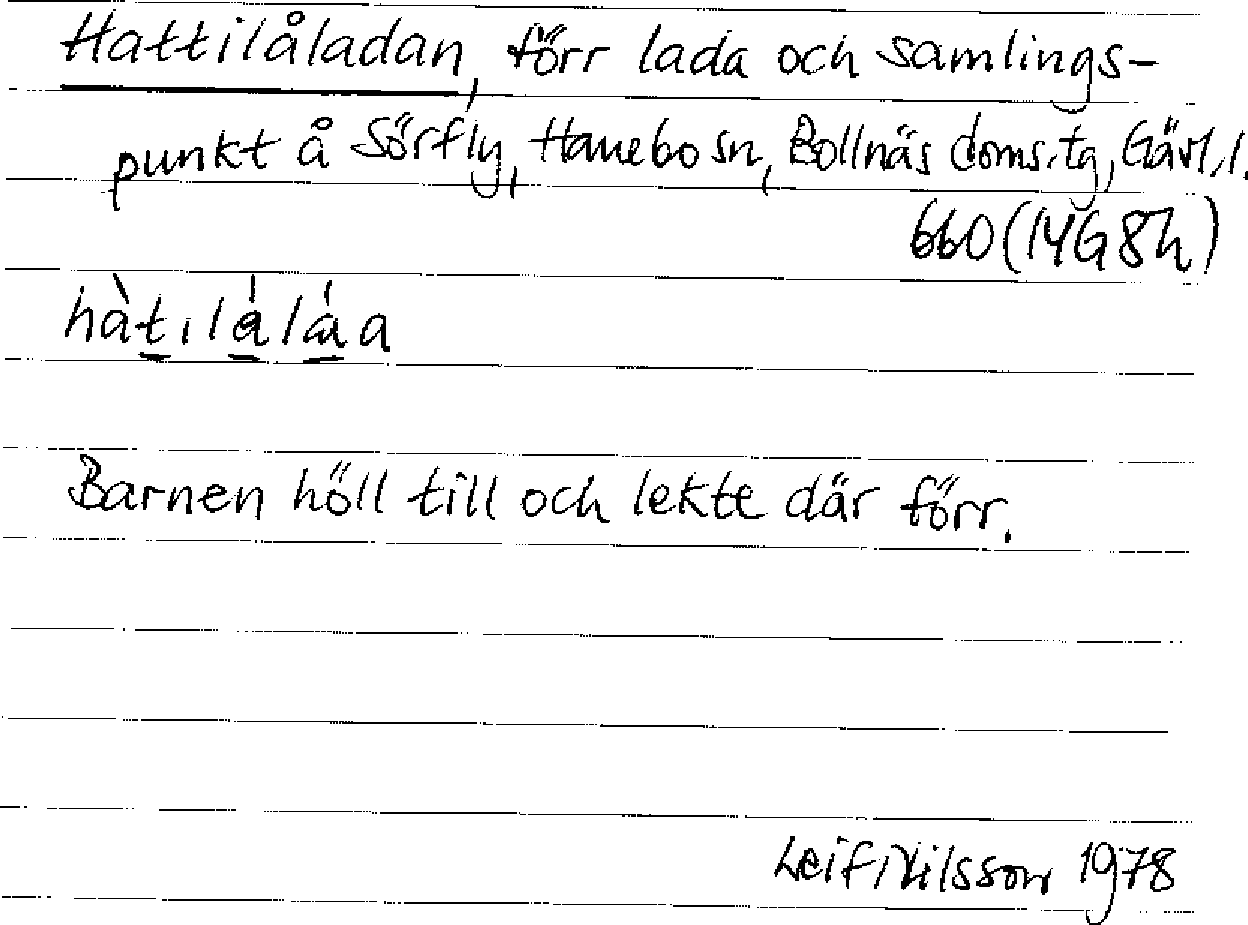 Hattilåladan, förr lada och samlings-
punkt å Sörfly, Hanebo sn, Bollnäs doms.tg, Gävl.l.
660 (14G8h)
hàtıláláa
Barnen höll till och lekte där förr.
Leif Nilsson 1978